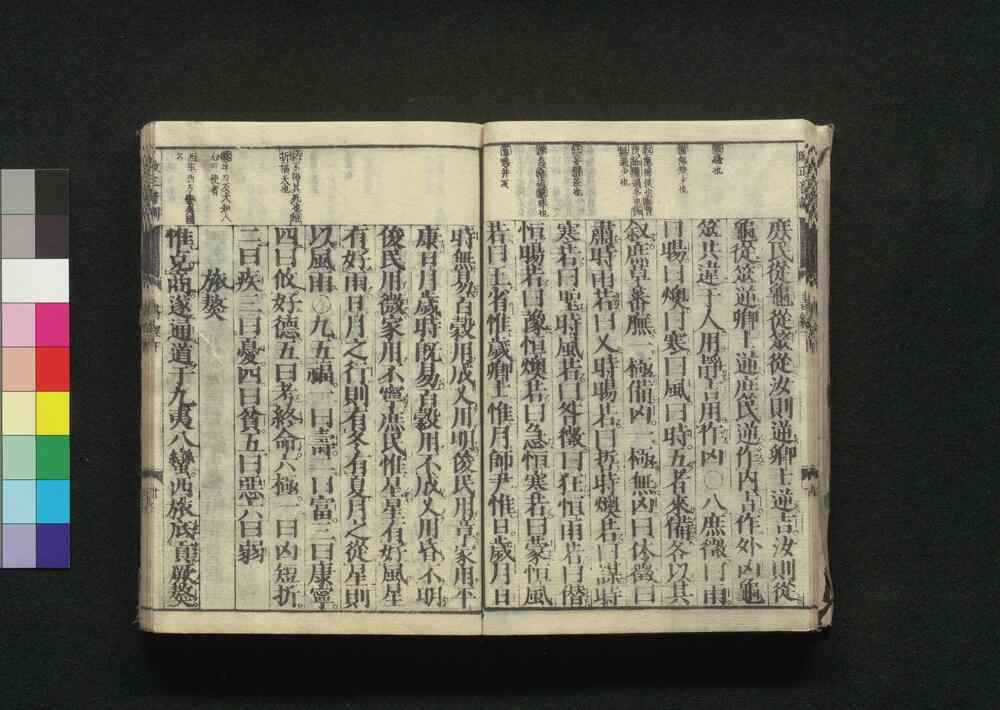 庶民從龜從筮從汝則逆卿士逆吉汝則從
龜從筮逆卿士逆庶民逆作內吉作外凶龜
筮共違于人用靜吉用作凶〇八庶徵曰雨
曰暘曰燠曰寒曰風曰時五者來備各以其
敘庶草蕃廡一極備凶一極無凶曰休徵曰
肅時雨若曰乂時暘若曰哲時燠若曰謀時
寒若曰聖時風若曰咎徵曰狂恒雨若曰僭
恒暘若曰豫恒燠若曰急恒寒若曰蒙恒風
若曰王省惟歲卿士惟月師尹惟日歲月日
時無易百穀用成乂用明俊民用章家用平
康日月歲時既易百穀用不成乂用昏不明
俊民用微家用不寧庶民惟星星有好風星
有好雨日月之行則有冬有夏月之從星則
以風雨〇九五福一曰壽二曰富三曰康寧
四曰攸好德五曰考終命六極一曰凶短折
二曰疾三曰憂四曰貧五曰惡六曰弱
旅獒
惟克商遂通道于九夷八蠻西旅底貢厥獒